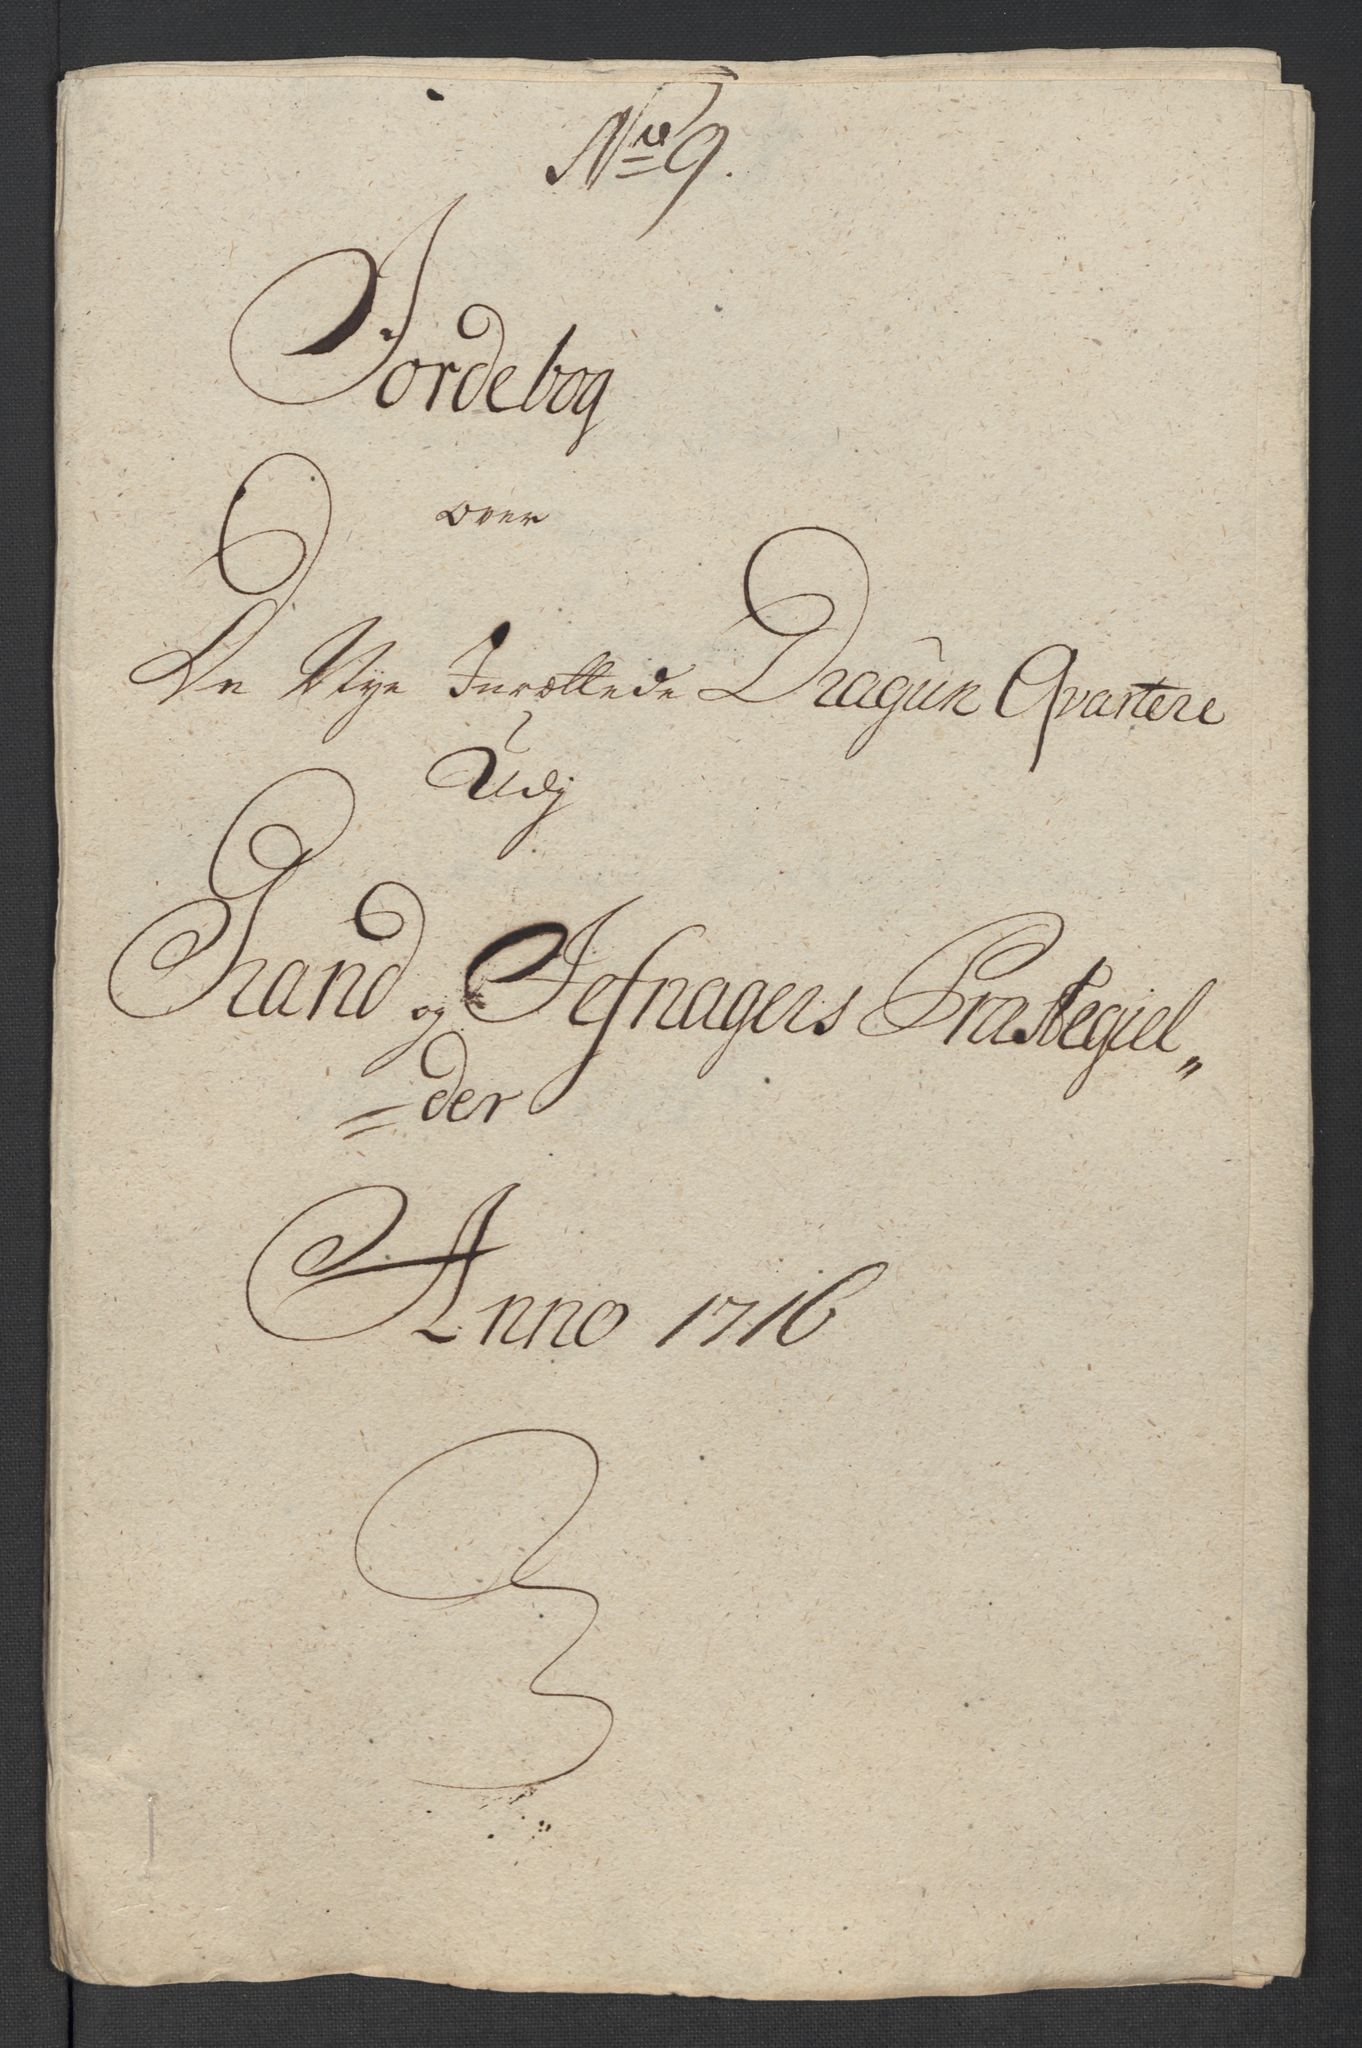 No 9.
Jordebog
over
De Nye Inrættede Dragun Qvartere
Udj
Grand og Jefnagers Præstegiel„
=der
Anno 1716